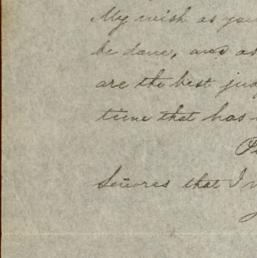 My wish as you
be done, and as
are the best jud
time that has
Señores that I